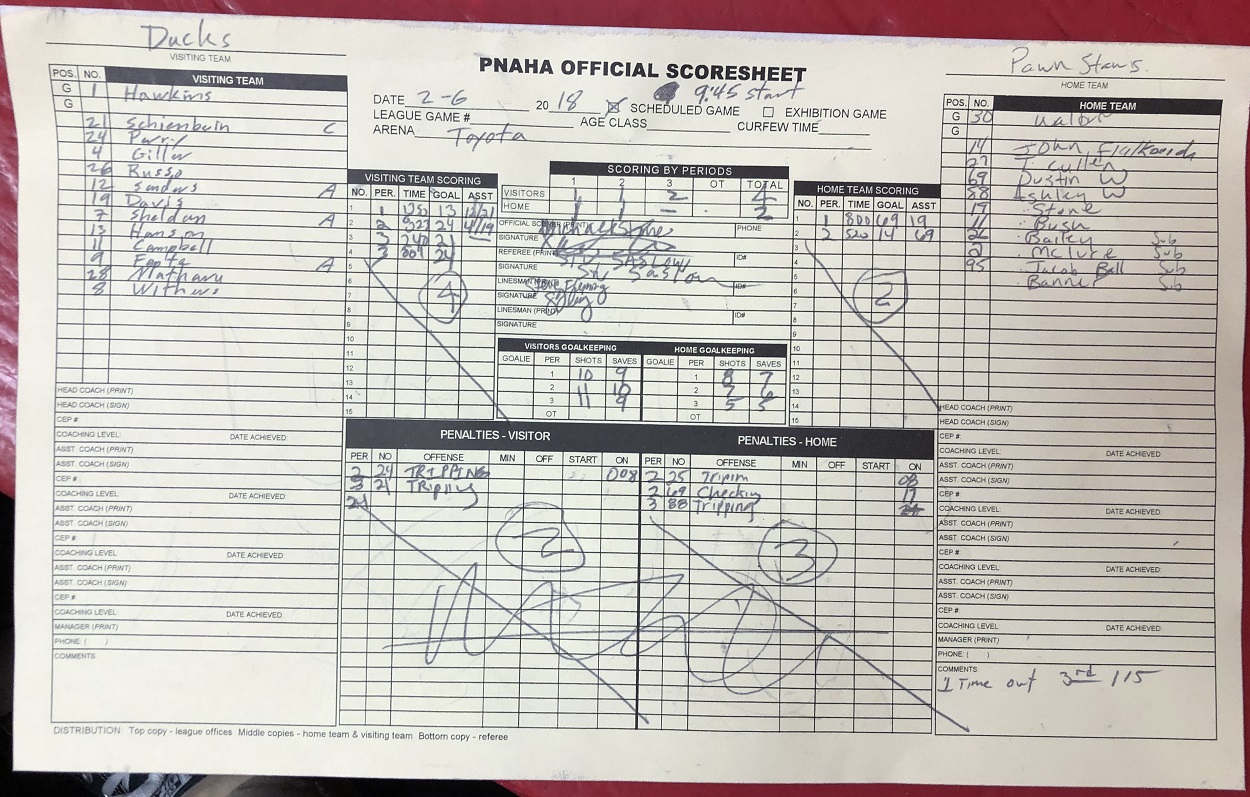 Ducks
VISITING TEAM
Pawn Stars
HOME TEAM
PNAHA OFFICIAL SCORESHEET
9:45 start
DATE 2-6 2018 ☒ SCHEDULED GAME ☐ EXHIBITION GAME
LEAGUE GAME # AGE CLASS CURFEW TIME
ARENA Toyota
POS. NO. VISITING TEAM
G 1 Hawkins
G
21 C
24
4
26 Russo
12 Sanders A
19 Davis
7 Sheldan A
13 Hanson
11 Campbell
9 A
28
8 Withers
HEAD COACH (PRINT)
HEAD COACH (SIGN)
CEP #
COACHING LEVEL: DATE ACHIEVED:
ASST. COACH (PRINT)
ASST. COACH (SIGN)
CEP #
COACHING LEVEL: DATE ACHIEVED:
ASST. COACH (PRINT)
ASST. COACH (SIGN)
CEP #
COACHING LEVEL: DATE ACHIEVED:
ASST. COACH (PRINT)
ASST. COACH (SIGN)
CEP #
COACHING LEVEL: DATE ACHIEVED:
MANAGER (PRINT)
PHONE: ( )
COMMENTS:
VISITING TEAM SCORING
NO. PER. TIME GOAL ASST
1 1 13
2 2 24
3 3 21
4 3 24
5
6
7
8
9
10
11
12
13
14
15
4
SCORING BY PERIODS
1 2 3 OT TOTAL
VISITORS 1 1 2 4
HOME 1 1 - 2
OFFICIAL SCORER (PRINT) PHONE
SIGNATURE
REFEREE (PRINT) ID#
SIGNATURE
LINESMAN (PRINT) ID#
SIGNATURE
LINESMAN (PRINT) ID#
SIGNATURE
VISITORS GOALKEEPING HOME GOALKEEPING
GOALIE PER SHOTS SAVES GOALIE PER SHOTS SAVES
1 10 9 1 8 7
2 11 10 2 7 6
3 11 9 3 5 5
OT OT
HOME TEAM SCORING
NO. PER. TIME GOAL ASST
1 1 800 69 19
2 2 520 14 69
3
4
5
6
7
8
9
10
11
12
13
14
15
2
PENALTIES - VISITOR
PER NO OFFENSE MIN OFF START ON
2 24 TRIPPING 008
3 21 Tripping
2
PENALTIES - HOME
PER NO OFFENSE MIN OFF START ON
2 25
2 69 Checking 17
3 88 Tripping
3
POS. NO. HOME TEAM
G 30
G
14 John
27 J. Cullen
69 Dustin W
88 Ashley W
19 Stone
11 Bush
Bailey Sub
McLure Sub
95 Jacob Ball Sub
Banner Sub
HEAD COACH (PRINT)
HEAD COACH (SIGN)
CEP #:
COACHING LEVEL: DATE ACHIEVED:
ASST. COACH (PRINT)
ASST. COACH (SIGN)
CEP #:
COACHING LEVEL: DATE ACHIEVED:
ASST. COACH (PRINT)
ASST. COACH (SIGN)
CEP #:
COACHING LEVEL: DATE ACHIEVED:
ASST. COACH (PRINT)
ASST. COACH (SIGN)
CEP #:
COACHING LEVEL: DATE ACHIEVED:
MANAGER (PRINT)
PHONE: ( )
COMMENTS:
1 Time out 3rd 115
DISTRIBUTION: Top copy - league offices Middle copies - home team & visiting team Bottom copy - referee